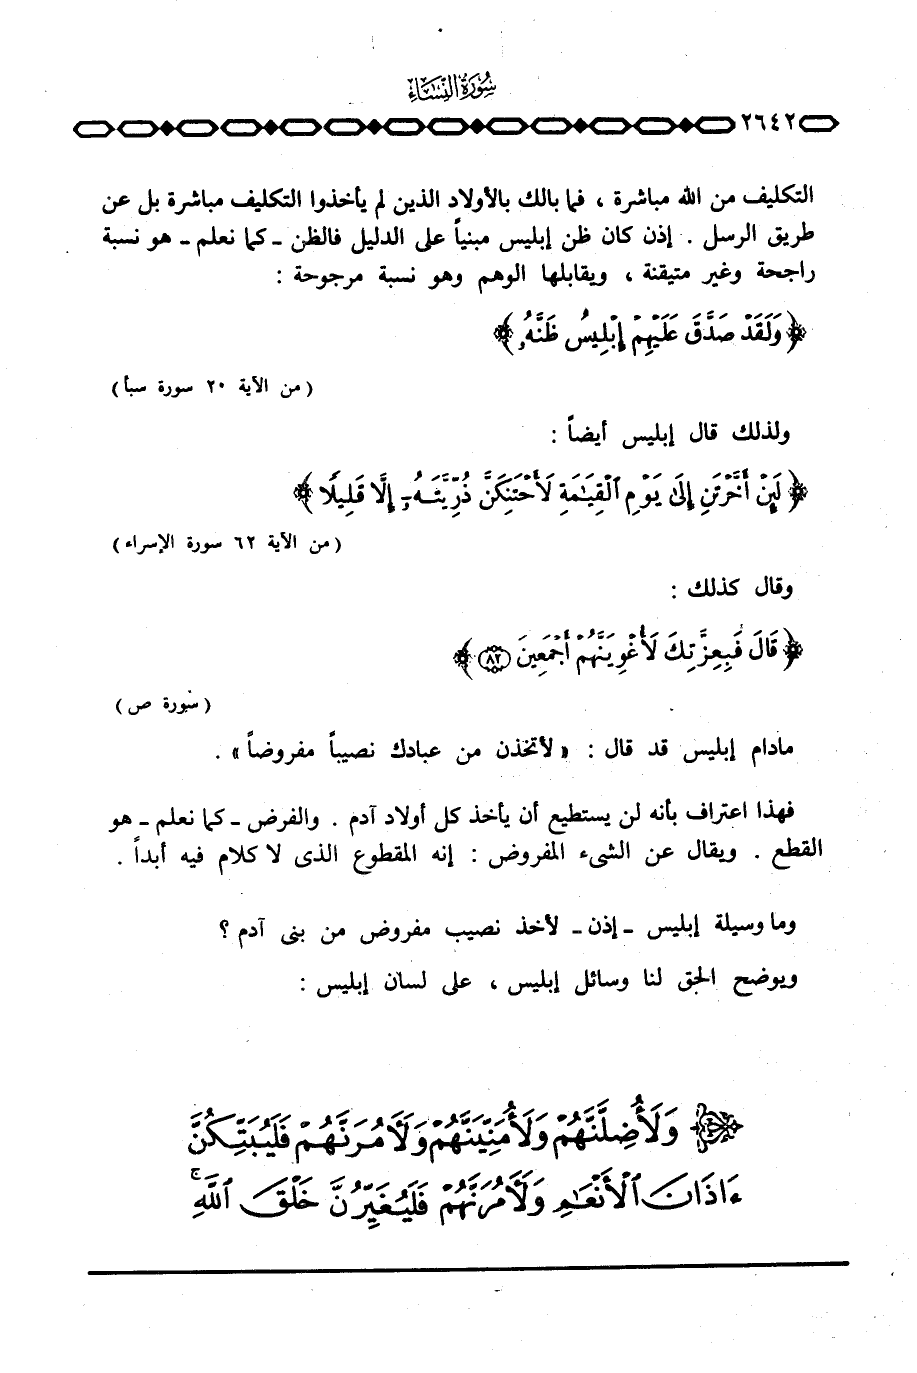 سُورَةُ النِّسَاءِ
٢٦٤٢
التكليف من الله مباشرة ، فما بالك بالأولاد الذين لم يأخذوا التكليف مباشرة بل عن
طريق الرسل . إذن كان ظن إبليس مبنياً على الدليل فالظن ـ كما نعلم ـ هو نسبة
راجحة وغير متيقنة ، ويقابلها الوهم وهو نسبة مرجوحة :
﴿ وَلَقَدْ صَدَّقَ عَلَيْهِمْ إِبْلِيسُ ظَنَّهُۥ ﴾
( من الآية ٢٠ سورة سبأ )
ولذلك قال إبليس أيضاً :
﴿ لَئِنْ أَخَّرْتَنِ إِلَىٰ يَوْمِ ٱلْقِيَٰمَةِ لَأَحْتَنِكَنَّ ذُرِّيَّتَهُۥٓ إِلَّا قَلِيلًا ﴾
( من الآية ٦٢ سورة الإسراء )
وقال كذلك :
﴿ قَالَ فَبِعِزَّتِكَ لَأُغْوِيَنَّهُمْ أَجْمَعِينَ ٨٢ ﴾
( سورة ص )
مادام إبليس قد قال : « لأتخذن من عبادك نصيباً مفروضاً » .
فهذا اعتراف بأنه لن يستطيع أن يأخذ كل أولاد آدم . والفرض ـ كما نعلم ـ هو
القطع . ويقال عن الشىء المفروض : إنه المقطوع الذى لا كلام فيه أبداً .
وما وسيلة إبليس ـ إذن ـ لأخذ نصيب مفروض من بنى آدم ؟
ويوضح الحق لنا وسائل إبليس ، على لسان إبليس :
وَلَأُضِلَّنَّهُمْ وَلَأُمَنِّيَنَّهُمْ وَلَآمُرَنَّهُمْ فَلَيُبَتِّكُنَّ
ءَاذَانَ ٱلْأَنْعَٰمِ وَلَآمُرَنَّهُمْ فَلَيُغَيِّرُنَّ خَلْقَ ٱللَّهِ ۚ